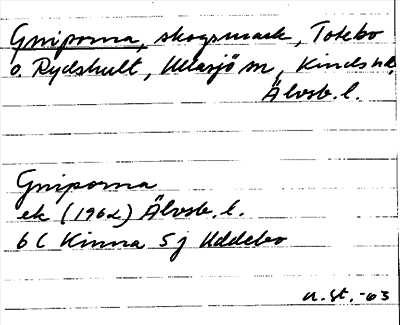 Gniporna, skogsmark, Totebo
o. Rydshult, Ullasjö sn, Kinds hd,
Älvsb. l.
Gniporna
ek (1962) Älvsb. l.
6 C Kinna 5 j Uddebo
U. St. -63